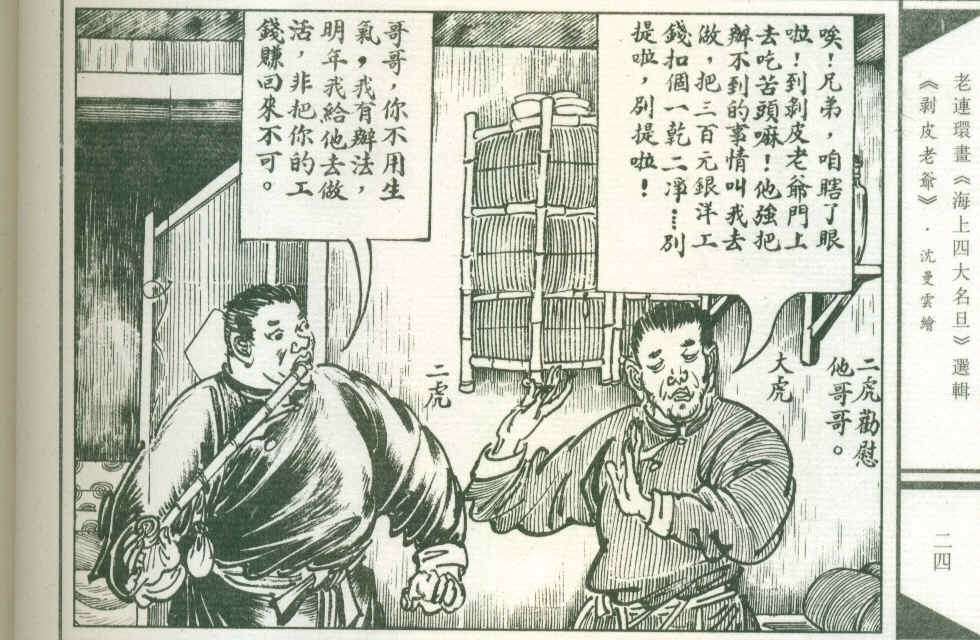 老連環畫《海上四大名旦》選輯
《剝皮老爺》．沈曼雲繪
二四
唉！兄弟，咱瞎了眼
啦！到剝皮老爺門上
去吃苦頭嘛！他強把
辦不到的事情叫我去
做，把三百元銀洋工
錢扣個一乾二淨……別
提啦，別提啦！
二虎勸慰
他哥哥。
大虎
哥哥，你不用生
氣，我有辦法，
明年我給他去做
活，非把你的工
錢賺回來不可。
二虎